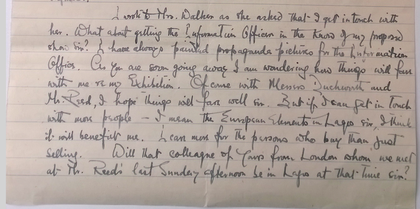 I wrote Mrs. Walker as she asked that I get in touch with
her. What about getting the Information Officer in the know of my proposed
show sir? I have always painted propaganda pictures for the Information
Office. As you are soon going away I am wondering how things will fare
with me re my Exhibition. Of course with Messrs Duckworth and
Mr. Reed, I hope things will fare well sir. But if I can get in touch
with more people – I mean the European Elements in Lagos sir, I think
it will benefit me. I care more for the persons who buy than just
selling. Will that colleague of yours from London whom we met
at Mr. Reed's last Sunday afternoon be in Lagos at that time sir?